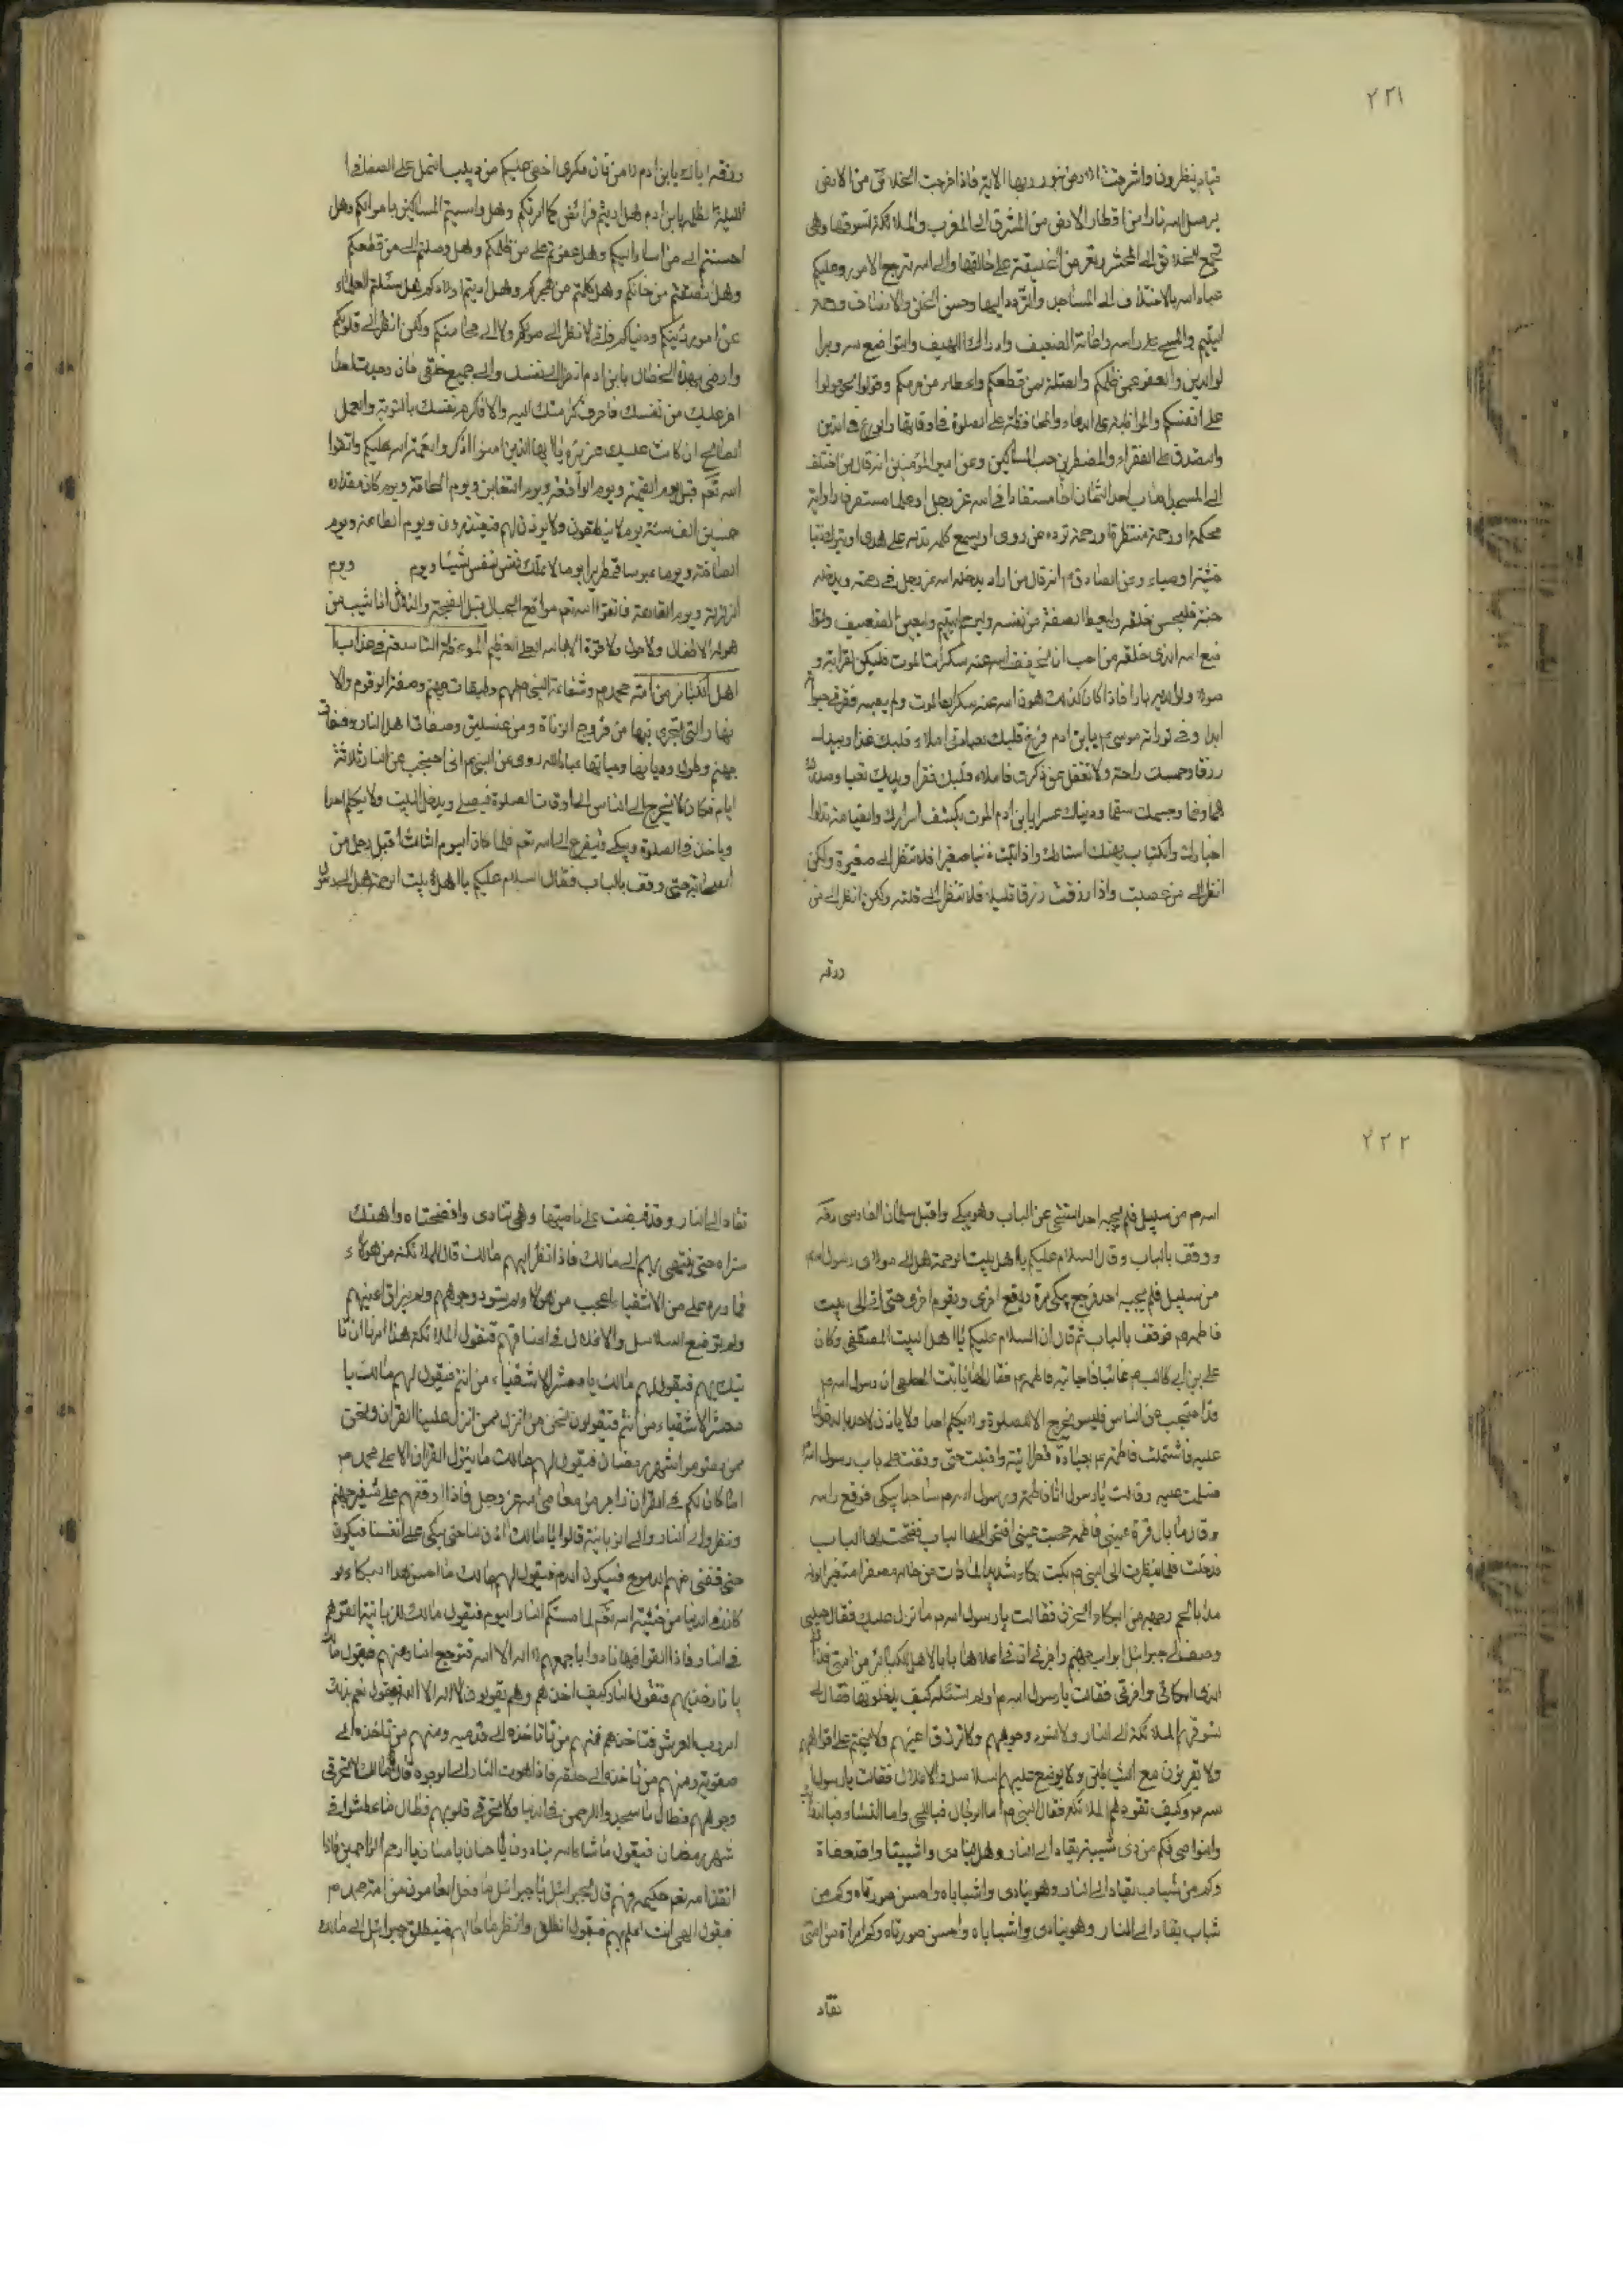 ٢٣١
قيام ينظرون واشرقت الارض بنور ربها الاية فاذا خرجت الخلائق من الارض
يرسل الله نارا من اقطار الارض من المشرق الى المغرب والملائكة تسوقها وهى
تجمع الخلائق الى المحشر وتعرض الخليقة على خالقها والى الله ترجع الامور وعليكم
عباد الله بالاختلاف الى المساجد والتردد اليها وحسن الخلق والانصاف ورحمة
اليتيم والمسح على راسه واعانة الضعيف وادراك اللهيف والتواضع لله وبرا
لوالدين والعفو عمن ظلمكم والصلة لمن قطعكم واعطاء من حرمكم وقولوا الحق ولوا
على انفسكم والمواظبة على الدعاء والمحافظة على الصلوة فى اوقاتها والورع فى الدين
والصدق على الفقراء والمضطرين حب المساكين وعن امير المؤمنين انه قال من اختلف
الى المسجد اصاب احد الثمان اخا مستفادا فى الله عز وجل او علما مستطرفا او اية
محكمة او رحمة منتظرة او رحمة ترده عن ردى او يسمع كلمة تدله على هدى او يترك ذنبا
خشية او حياء وعن الصادق انه قال من اراد يدخله الله عز وجل فى رحمته ويدخله
جنته فليحسن خلقه وليعط النصفة من نفسه وليرحم اليتيم وليعن الضعيف وليتوا
ضع لله الذى خلقه من احب ان يخفف الله عنه سكرات الموت فليكن لقرابته و
صولا ولوالديه بارا فاذا كان كذلك هون الله عنه سكرات الموت ولم يصبه فقر فى حيوته
ابدا وفى توراة موسى يا ابن ادم فرغ قلبك لعبادتى املاء قلبك غنى ويديك
رزقا وجسمك راحة ولا تغفل عن ذكرى فاملاء قلبك فقرا ويديك تعبا وصدرك
هما وغما وجسمك سقما ودنياك عسرا يا ابن ادم الموت يكشف اسرارك والقيامة تبلوا
اخبارك والكتاب يهتك استارك واذا اذنبت ذنبا صغيرا فلا تنظر الى صغيرة ولكن
انظر الى من عصيت واذا رزقت رزقا قليلا فلا تنظر الى قلته ولكن انظر الى من
رزقه
رزقه اياك يا ابن ادم لا من فان مكرى اخفى عليكم من دبيب النمل على الصفا فى ا
لليلة الظلمة يا ابن ادم هل اديتم فرائضى كما امرتكم وهل واسيتم المساكين باموالكم وهل
احسنتم الى من اساء اليكم وهل عفوتم على من ظلمكم وهل وصلتم الى من قطعكم
وهل انصفتم من خانكم وهل كلمتم من هجركم وهل ادبتم اولادكم وهل سئلتم العلماء
عن امور دينكم ودنياكم فانى لا انظر الى صوركم ولا الى محاسنكم ولكن انظر الى قلوبكم
وارضى بهذه الخصال يا ابن ادم انظر الى نفسك والى جميع خلقى فان وجدت احدا
اعز عليك من نفسك فاصرف كرامتك اليه والا فاكرم نفسك بالتوبة والعمل
الصالح ان كانت عليك عزيزة يا ايها الذين امنوا اذكروا نعمة الله عليكم واتقوا
الله تعم قبل يوم القيمة ويوم الواقعة ويوم التغابن ويوم الحاقة ويوم كان مقداره
خمسين الف سنة يوم لا ينطقون ولا يوذن لهم فيعتذرون ويوم الطامة ويوم
الصاخة ويوما عبوسا قمطريرا يوما لا تملك نفس لنفس شيئا ويوم ويوم
الزلزلة ويوم القارعة فاتقوا الله
هوله الاطفال ولا حول ولا قوة الا بالله العلى العظيم الموعظة التاسعة فى عذاب ا
اهل الكبائر من امة محمد وشفاعة النبى لهم وطبقات جهنم وصفة الزقوم والا
نهار التى تجرى فيها من فروج الزناة ومن غسلين وصفات اهل النار وصفات
جهنم وطولها وحياتها وحياتها عباد الله روى عن النبى انه احتجب عن الناس ثلاثة
ايام فكان لا يخرج الى الناس الا اوقات الصلوة فيصلى ويدخل البيت ولا يكلم احدا
وياخذ فى الصلوة ويبكى ويتضرع الى الله تعم فلما كان اليوم الثالث اقبل رجل من
الصحابة حتى وقف بالباب فقال السلام عليكم يا اهل بيت الرحمة هل الى رسول
٢٣٢
الله من سبيل فلم يجبه احد استثنى عن الباب وهو يبكى واقبل سلمان الفارسى
ووقف بالباب وقال السلام عليكم يا اهل بيت الرحمة هل الى مولاى رسول الله
من سبيل فلم يجبه احد فرجع يبكى مرة ويقع اخرى ويقوم اخرى حتى اتى الى بيت
فاطمه فوقف بالباب ثم قال ان السلام عليكم يا اهل بيت المصطفى وكان
على بن ابى طالب غائبا فاجابته فاطمة فقال لها يا بنت المصطفى ان رسول الله
قد احتجب عن الناس فليس يخرج الا للصلوة ولا يكلم احدا ولا ياذن لاحد بالدخول
عليه فاشتملت فاطمة بعباءة قطوانية واقبلت حتى وقفت على باب رسول الله
فسلمت عليه وقالت يا رسول الله انا فاطمة ورسول الله ساجدا يبكى فرفع راسه
وقال ما بال قرة عينى فاطمه حجبت عينى افتحى لها الباب ففتحت لها الباب
فدخلت فلما نظرت الى النبى بكت بكاء شديدا لما رات من حاله مصفرا متغيرا لونه
مذابا لحم وجهه من البكاء والحزن فقالت يا رسول الله ما نزل عليك فقال حبيبى
وصف لى جبرائيل ابواب جهنم واخبرنى ان فى اعلاها بابا لاهل الكبائر من امتى فهذا
الذى ابكانى واحزننى فقالت يا رسول الله اولم تسئله كيف يدخلونها فقال لى
تسوقهم الملائكة الى النار ولا تسود وجوههم ولا تزرق اعينهم ولا يختم على افواههم
ولا تقرنون مع الشياطين ولا يوضع عليهم السلاسل والاغلال فقالت يا رسول ا
لله وكيف تقودهم الملائكة فقال النبى اما الرجال فباللحى واما النساء فبالذوائب
والنواصى فكم من ذى شيبة يقاد الى النار وهو ينادى واشيبتا واضعفاه
وكم من شباب يقاد الى النار وهو ينادى واشباباه واحسن صورتاه وكم من
شباب يقاد الى النار وهو ينادى واشباباه واحسن صورتاه وكم امراة من امتى
تقاد
تقاد الى النار وقد قبضت على ناصيتها وهى تنادى وافضحتاه واهتك
ستراه حتى ينتهى بهم الى مالك فاذا نظر اليهم مالك قال للملائكة من هولاء
فما ورد على من الاشقياء اعجب من هولاء ولم يسود وجوههم ولم يزراق اعينهم
ولم توضع السلاسل والاغلال فى اعناقهم فتقول الملائكة هكذا امرنا ان نا
تيك بهم فيقول لهم مالك يا معشر الاشقياء من انتم فيقول لهم مالك يا
معشر الاشقياء من انتم فيقولون نحن من انزل ممن انزل علينا القران ونحن
ممن يصوم شهر رمضان فيقول لهم مالك ما ينزل القران الا على محمد
اما كان لكم فى القران زاجر من معاصى الله عز وجل فاذا اوقفهم على شفير جهنم
ونظروا الى النار والى الزبانية قالوا يا مالك ائذن لنا حتى نبكى على انفسنا فيبكون
حتى تفنى منهم الدموع فيبكون الدم فيقول لهم مالك ما احسن هذا البكاء لو
كان فى الدنيا من خشية الله تعم لما مستكم النار اليوم فيقول مالك للزبانية القوهم
فى النار فاذا القوا فيها نادوا باجمعهم لا اله الا الله فترجع النار عنهم فيقول مالك
يا نار خذيهم فتقول النار كيف اخذهم وهم يقولون لا اله الا الله فيقول نعم بذلك
امر رب العرش فتاخذهم فمنهم من تاخذه الى قدميه ومنهم من تاخذه الى
حقويه ومنهم من تاخذه الى حلقه فاذا اهوت النار الى الوجوه قال مالك لا تحرقى
وجوههم فطال ما سجدوا للرحمن فى الدنيا ولا تحرقى قلوبهم فطال ما عطشوا فى
شهر رمضان فيقول ما شاء الله ينادون يا حنان يا منان يا ارحم الراحمين فاذا
انفذ الله تعم حكمه فيهم قال لجبرائيل يا جبرائيل ما فعل العاصون من امة محمد
فيقول الهى انت اعلم بهم فيقول انطلق وانظر ما حالهم فينطلق جبرائيل الى مالك